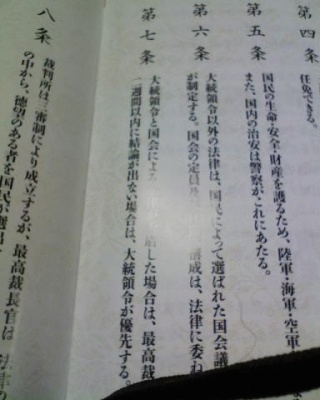 第四条
任免できる。
第五条
国民の生命・安全・財産を護るため、陸軍・海軍・空軍
また、国内の治安は警察がこれにあたる。
第六条
大統領令以外の法律は、国民によって選ばれた国会議
が制定する。国会の定員及 構成は、法律に委ね
第七条
大統領令と国会による した場合は、最高裁
二週間以内に結論が出ない場合は、大統領令が優先する。
八条
裁判所は三審制により成立するが、最高裁長官は
の中から、徳望のある者を国民が選出